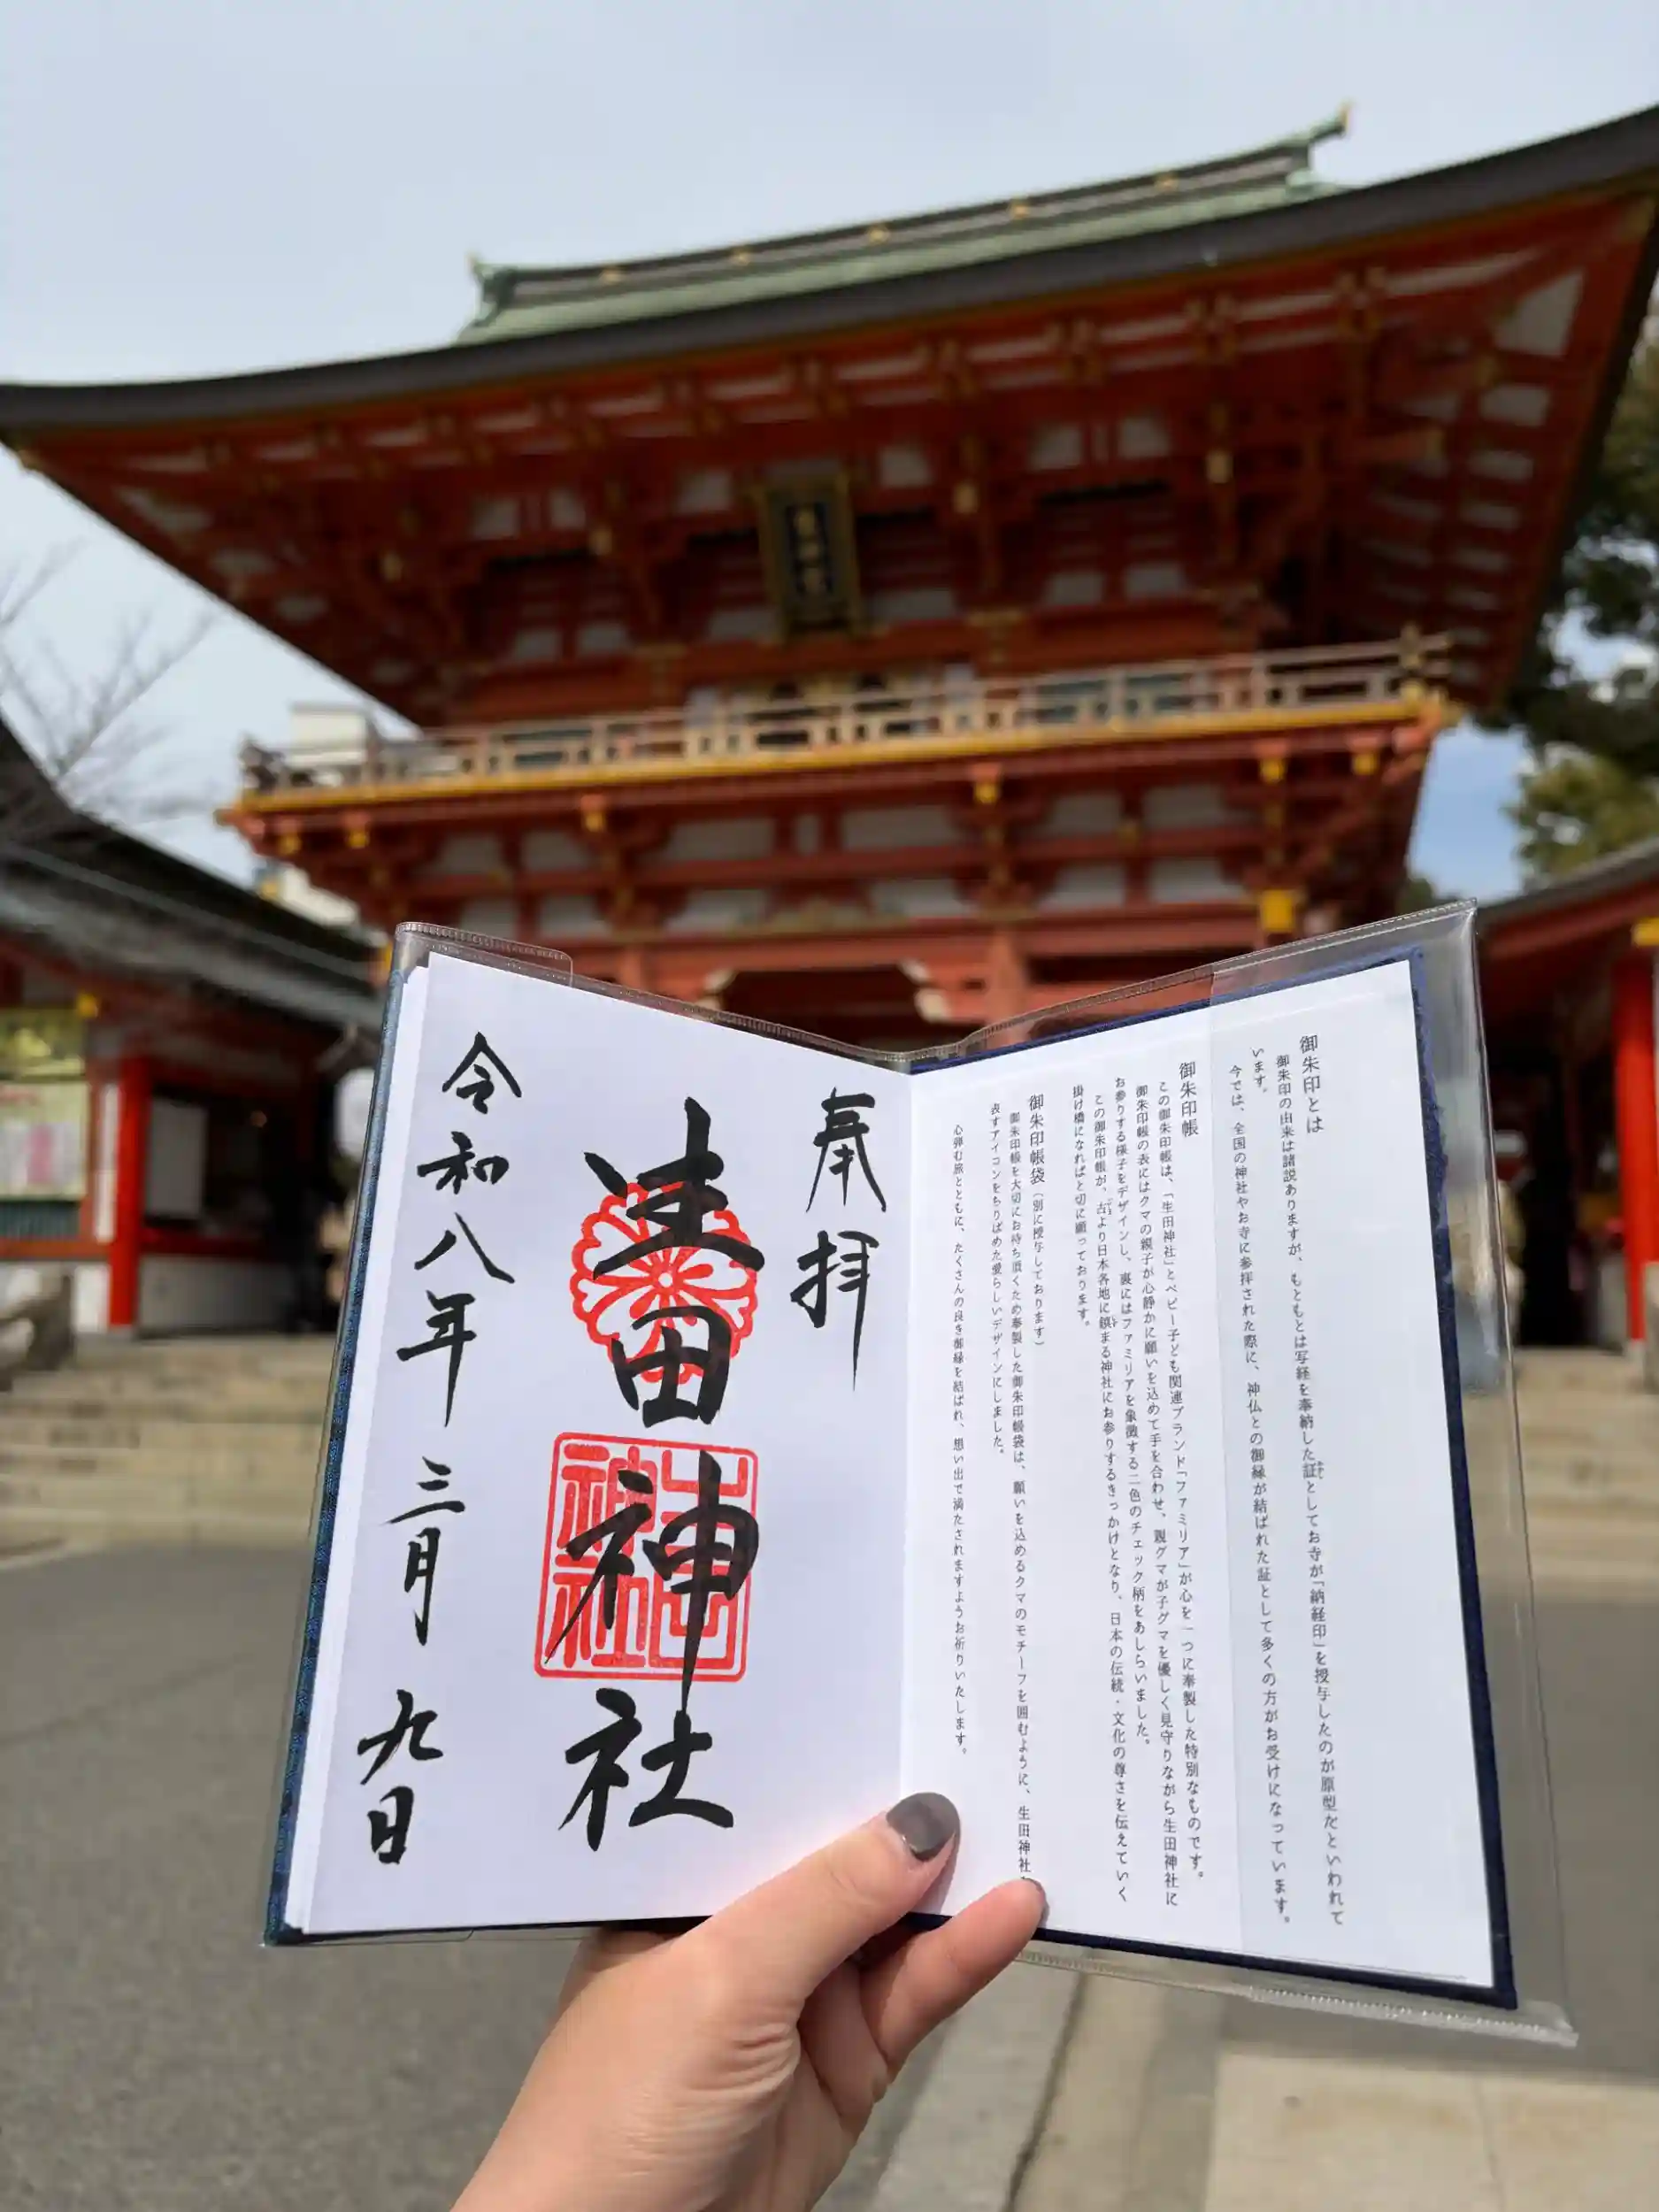 御朱印とは
御朱印の由来は諸説ありますが、もともとは写経を奉納した証としてお寺が「納経印」を授与したのが原型だといわれて
います。
今では、全国の神社やお寺に参拝された際に、神仏との御縁が結ばれた証として多くの方がお受けになっています。
御朱印帳
この御朱印帳は、「生田神社」とベビー子ども関連ブランド「ファミリア」が心を一つに奉製した特別なものです。
御朱印帳の表にはクマの親子が心静かに願いを込めて手を合わせ、親グマが子グマを優しく見守りながら生田神社に
お参りする様子をデザインし、裏にはファミリアを象徴する二色のチェック柄をあしらいました。
この御朱印帳が、古より日本各地に鎮まる神社にお参りするきっかけとなり、日本の伝統・文化の尊さを伝えていく
掛け橋になればと切に願っております。
御朱印帳袋（別に授与しております）
御朱印帳を大切にお持ち頂くため奉製した御朱印帳袋は、願いを込めるクマのモチーフを囲むように、生田神社
表すアイコンをちりばめた愛らしいデザインにしました。
心弾む旅とともに、たくさんの良き御縁を結ばれ、想い出で満たされますようお祈りいたします。
奉拝
生田神社
生田神社
令和八年三月九日